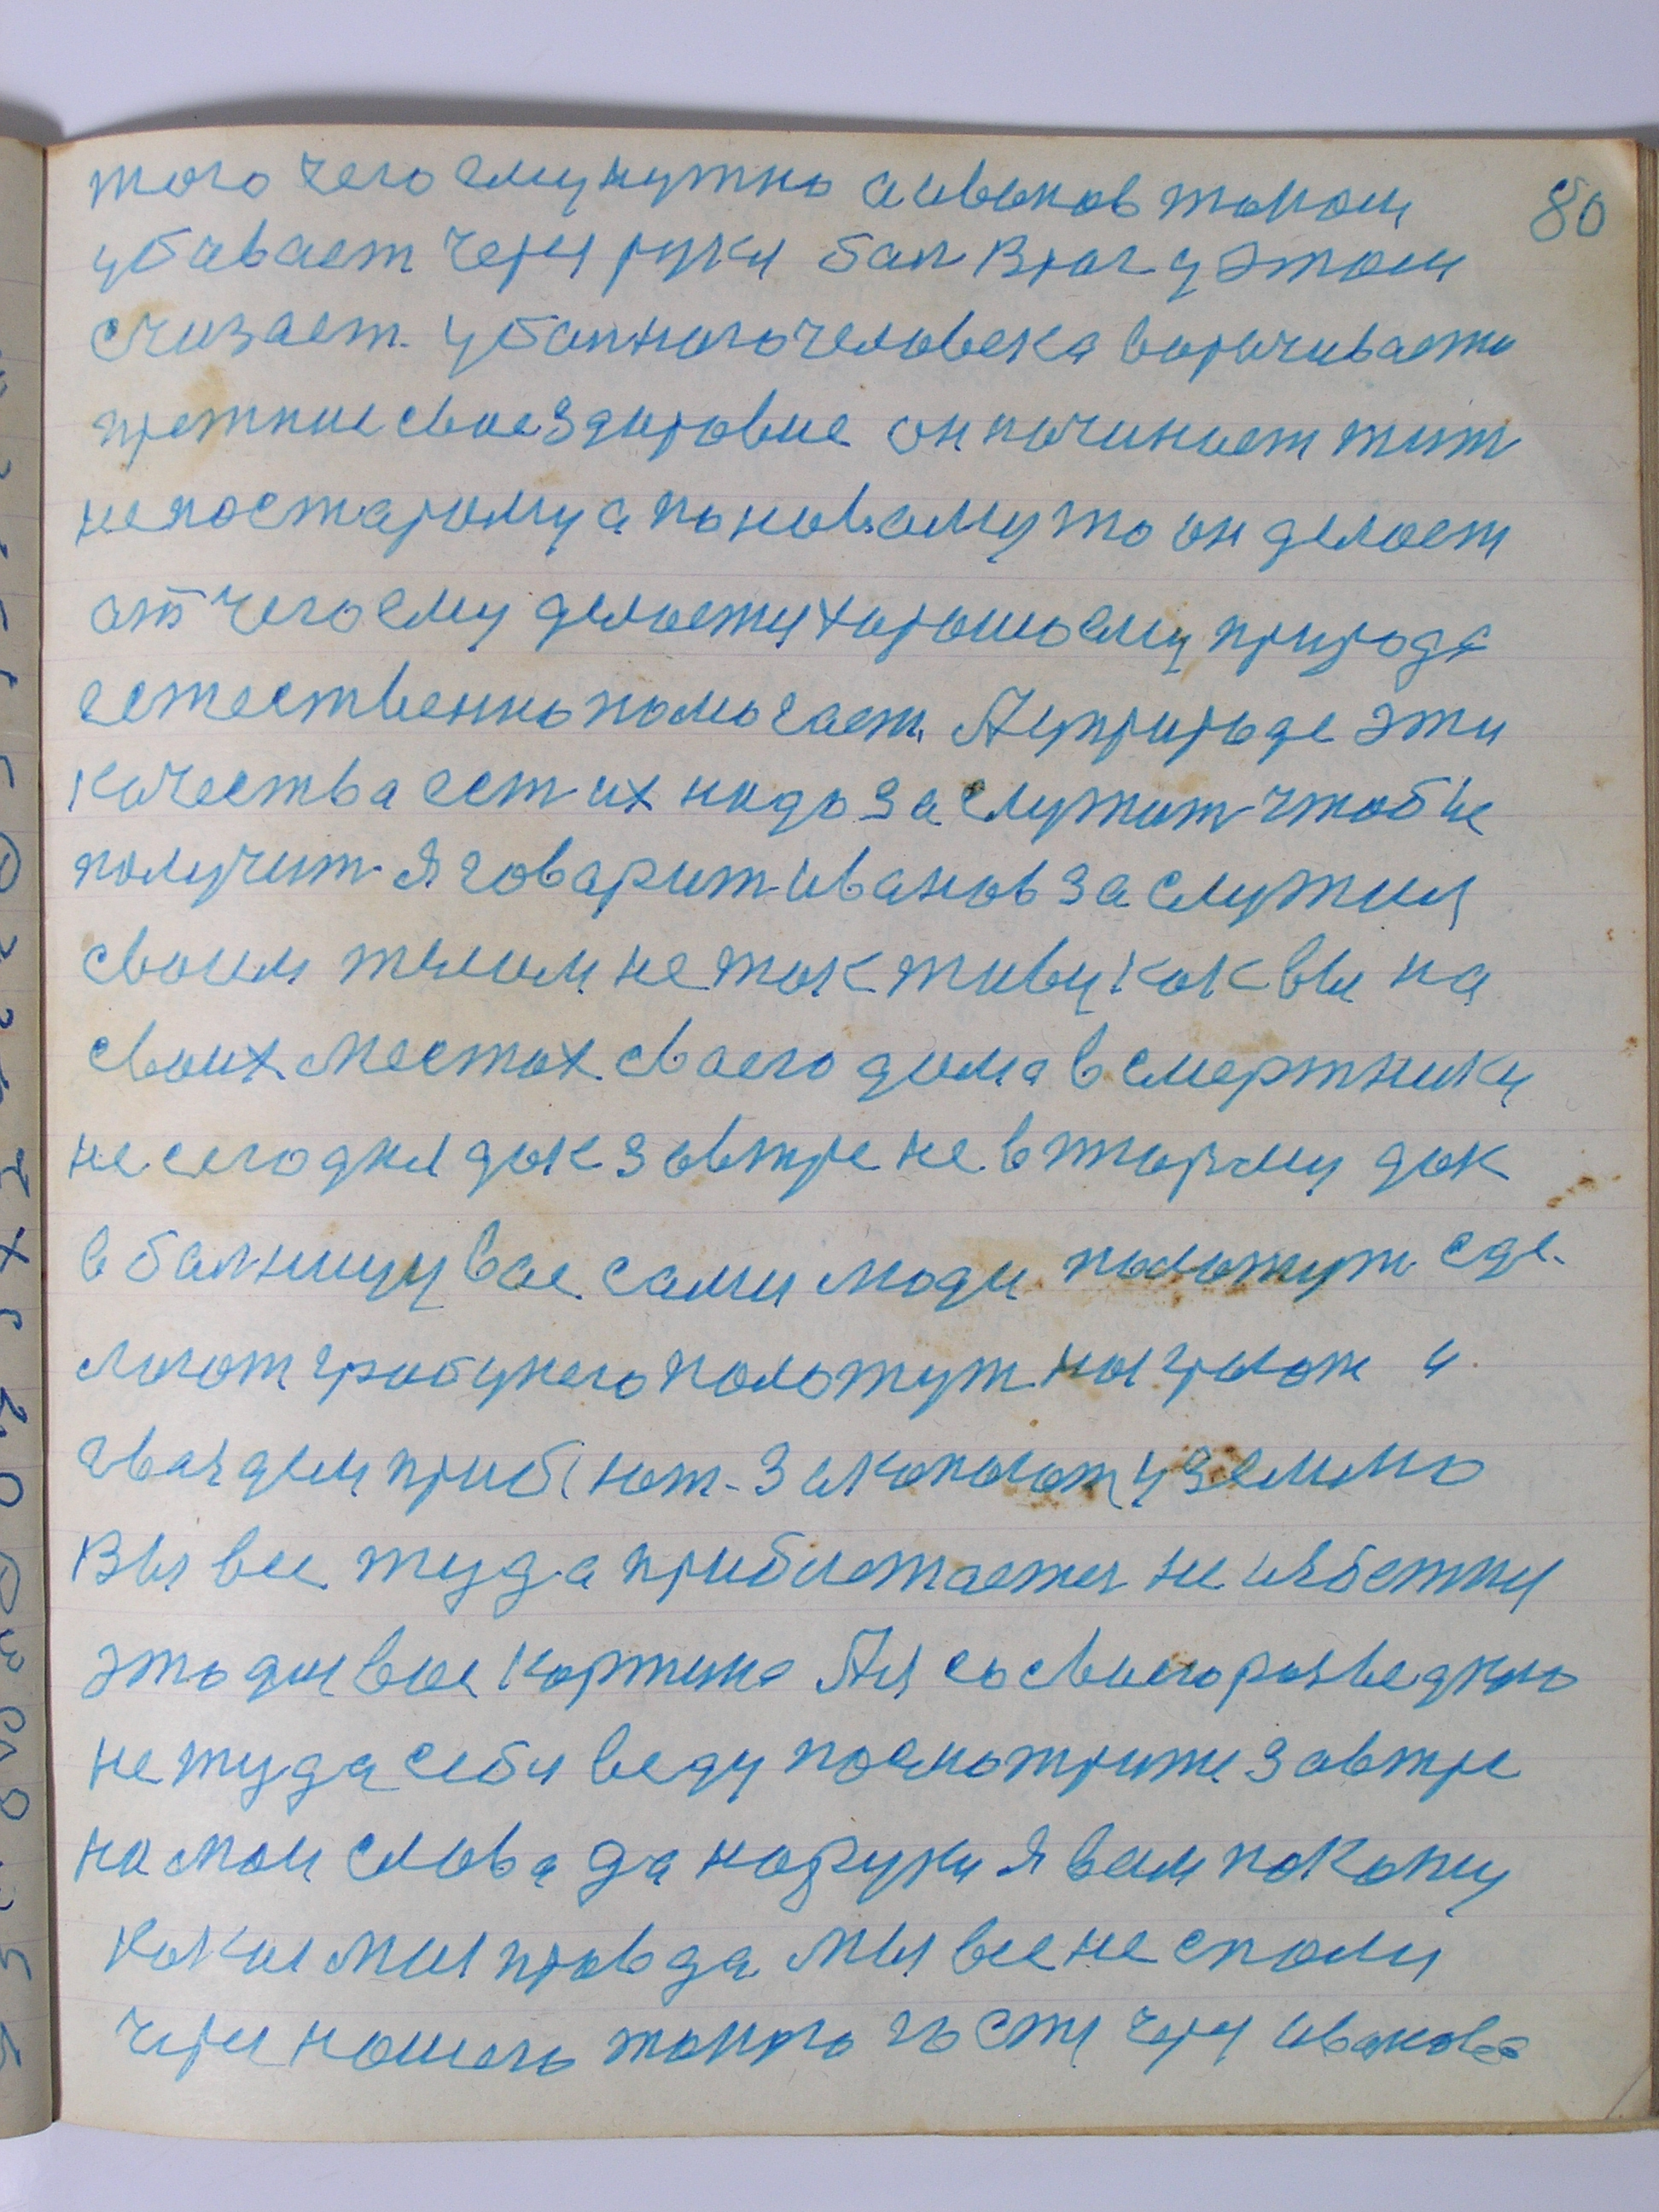 80
того чего ему нужно а иванов током
убивает через руки бал Враг у этом
счизает. у балного человека ворачивается
прежние свое здоровие он начинает жит
не постарому а по новаму то он делает
от чего ему делается хорошо ему природа
естественно помогает. А у природе эти
качества ест их надо заслужит чтоб ие
получит. Я говарит иванов заслужил
своим телом не так живу как вы на
своих местах своего дома в смертнику
не сегодня дак завтре не в тюрму дак
в балницу вас сами люди положут сде.
лают гроб у него положут накроют и
гваздем прибют. Закопают у землю
Вы все туда приближаетес не избежни
это для вас картина А я со своего разведкаю
не туда себя веду посмотрите завтре
на мои слова да на руки я вам покажу
какие мы правда мы все не спали
через нашего такого гостя через иванова